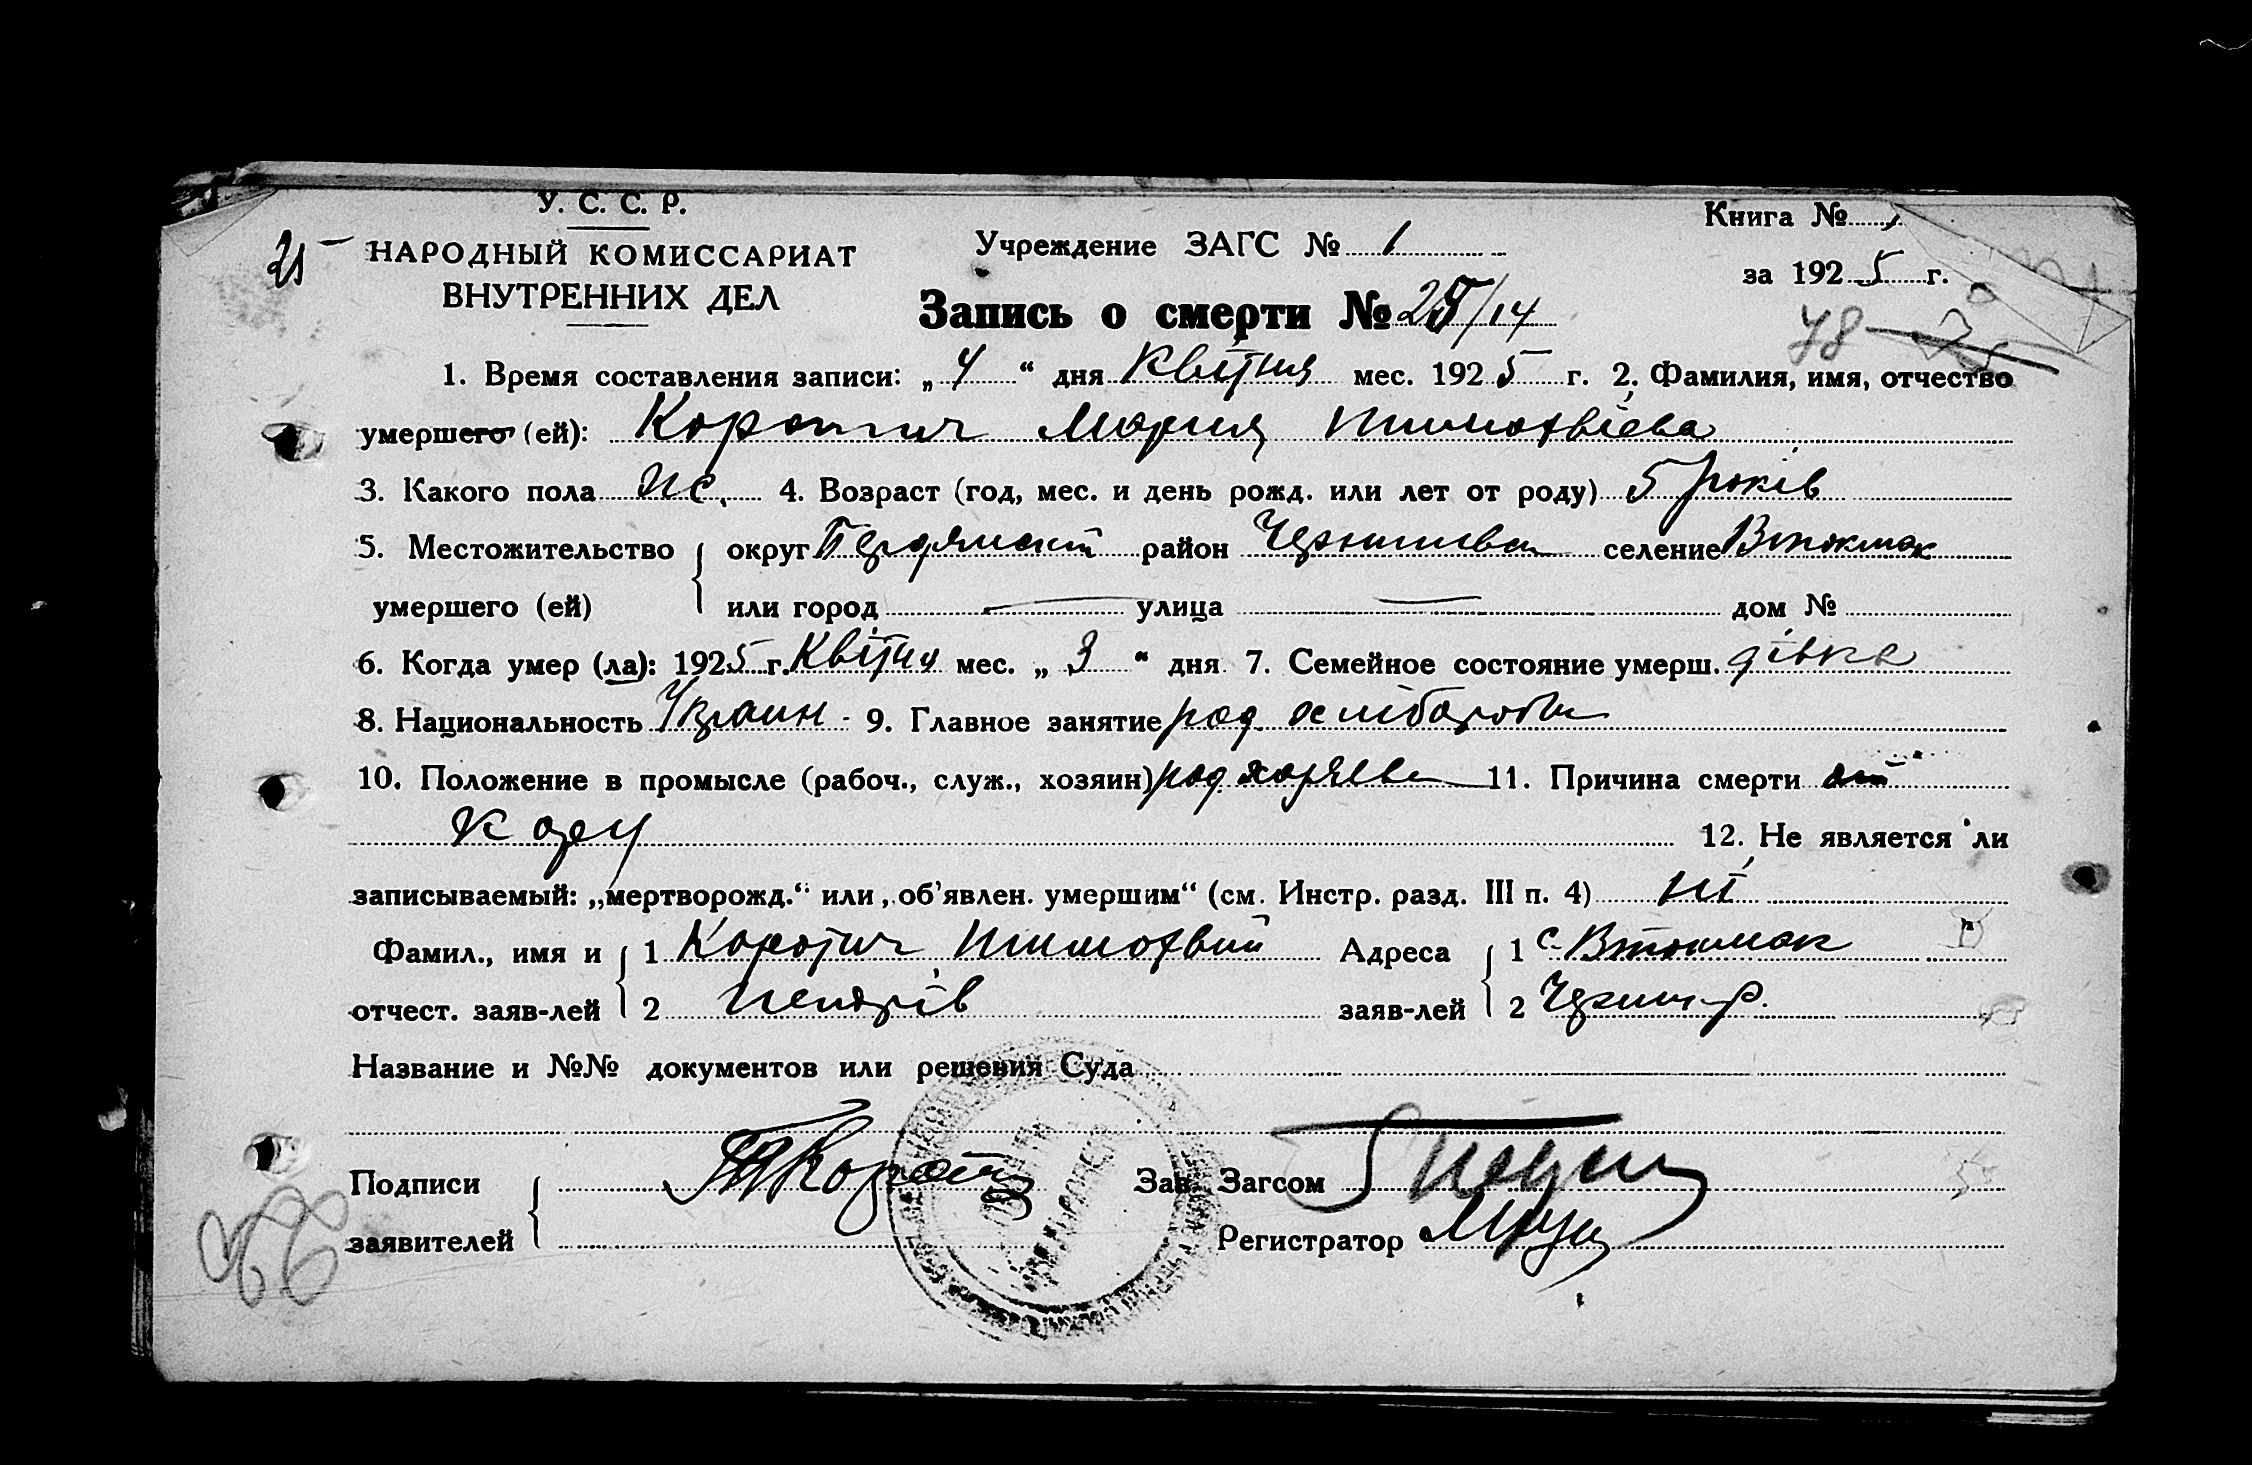 У. С. С. Р.
НАРОДНЫЙ КОМИССАРИАТ
ВНУТРЕННИХ ДЕЛ
Учреждение ЗАГС № 1
Книга № 1
за 1925 г.
Запись о смерти № 25/14
48
1. Время составления записи: „4“ дня Квітня мес. 1925 г. 2. Фамилия, имя, отчество
умершего (ей): Коротич Мария Тимофвієва
3. Какого пола ж. 4. Возраст (год, мес. и день рожд. или лет от роду) 5 років
5. Местожительство округ Бердянский район Чернигівск селение Втокмак
умершего (ей) или город — улица — дом №
6. Когда умер (ла): 1925 г. Квітня мес. „3“ дня 7. Семейное состояние умерш. дівка
8. Национальность Украин 9. Главное занятие род хліборобы
10. Положение в промысле (рабоч., служ., хозяин) род хозяева 11. Причина смерти от
Кору
12. Не является ли
записываемый: „мертворожд.“ или „об'явлен. умершим“ (см. Инстр. разд. III п. 4) ні
Фамил., имя и 1 Коротич Тимофвий Адреса 1 с. Втокмак
отчест. заяв-лей 2 заяв-лей 2 Черниг-р.
Название и №№ документов или решения Суда
Подписи Т Корот Зав. Загсом
заявителей Регистратор